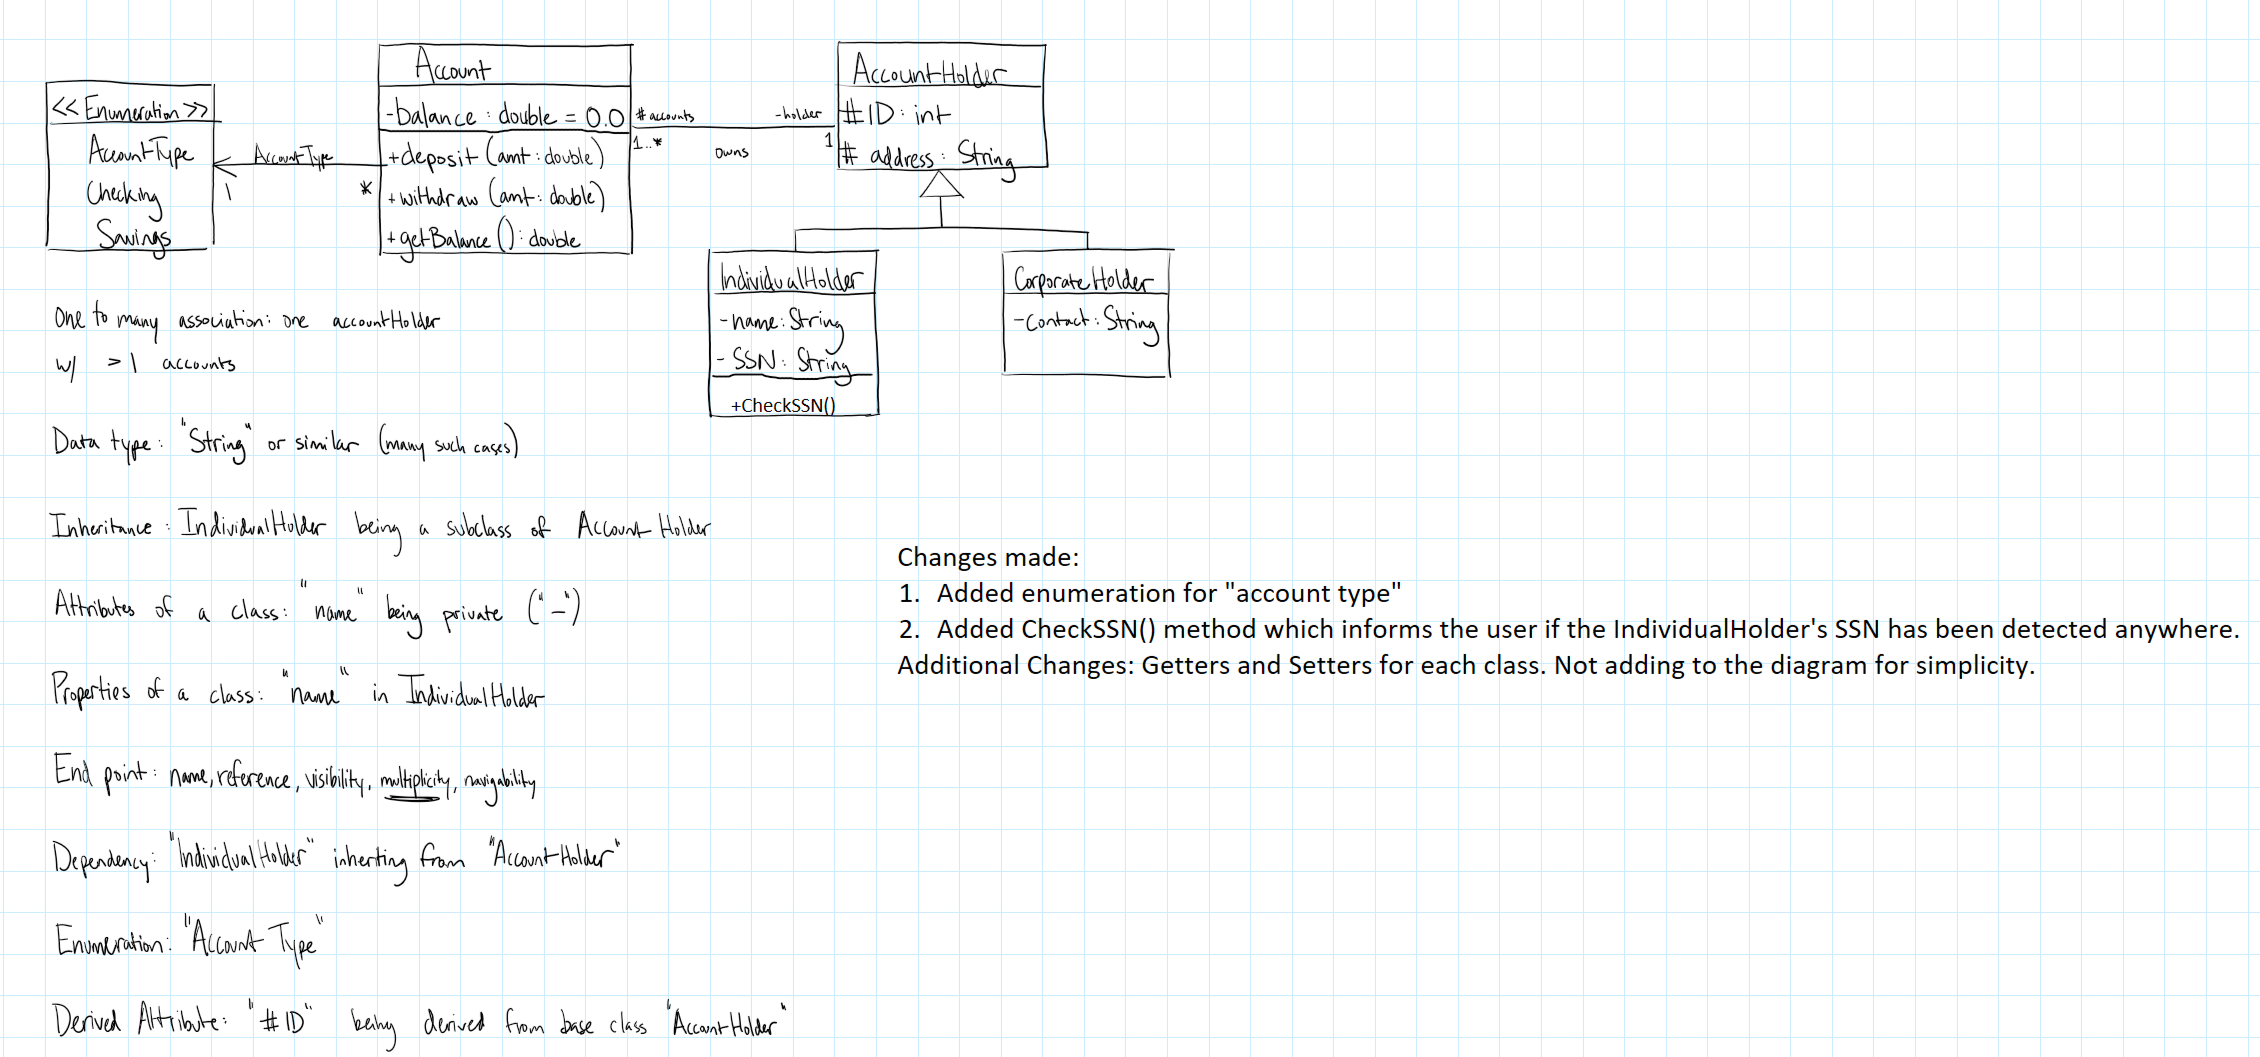 << Enumeration >>
AccountType
Checking
Savings
AccountType
1
*
Account
-balance : double = 0.0
+deposit (amt : double)
+withdraw (amt : double)
+getBalance () : double
# accounts
1..*
owns
-holder
1
AccountHolder
#ID : int
# address : String
IndividualHolder
-name : String
- SSN : String
+CheckSSN()
CorporateHolder
-Contact : String
One to many association: one accountHolder
w/ >1 accounts
Data type: "String" or similar (many such cases)
Inheritance : IndividualHolder being a subclass of AccountHolder
Attributes of a class: "name" being private ("-")
Properties of a class: "name" in IndividualHolder
End point: name, reference, visibility, multiplicity, navigability
Dependency: "IndividualHolder" inherting from "AccountHolder"
Enumeration: "Account Type"
Derived Attribute: "#ID" being derived from base class "AccountHolder"
Changes made:
1. Added enumeration for "account type"
2. Added CheckSSN() method which informs the user if the IndividualHolder's SSN has been detected anywhere.
Additional Changes: Getters and Setters for each class. Not adding to the diagram for simplicity.